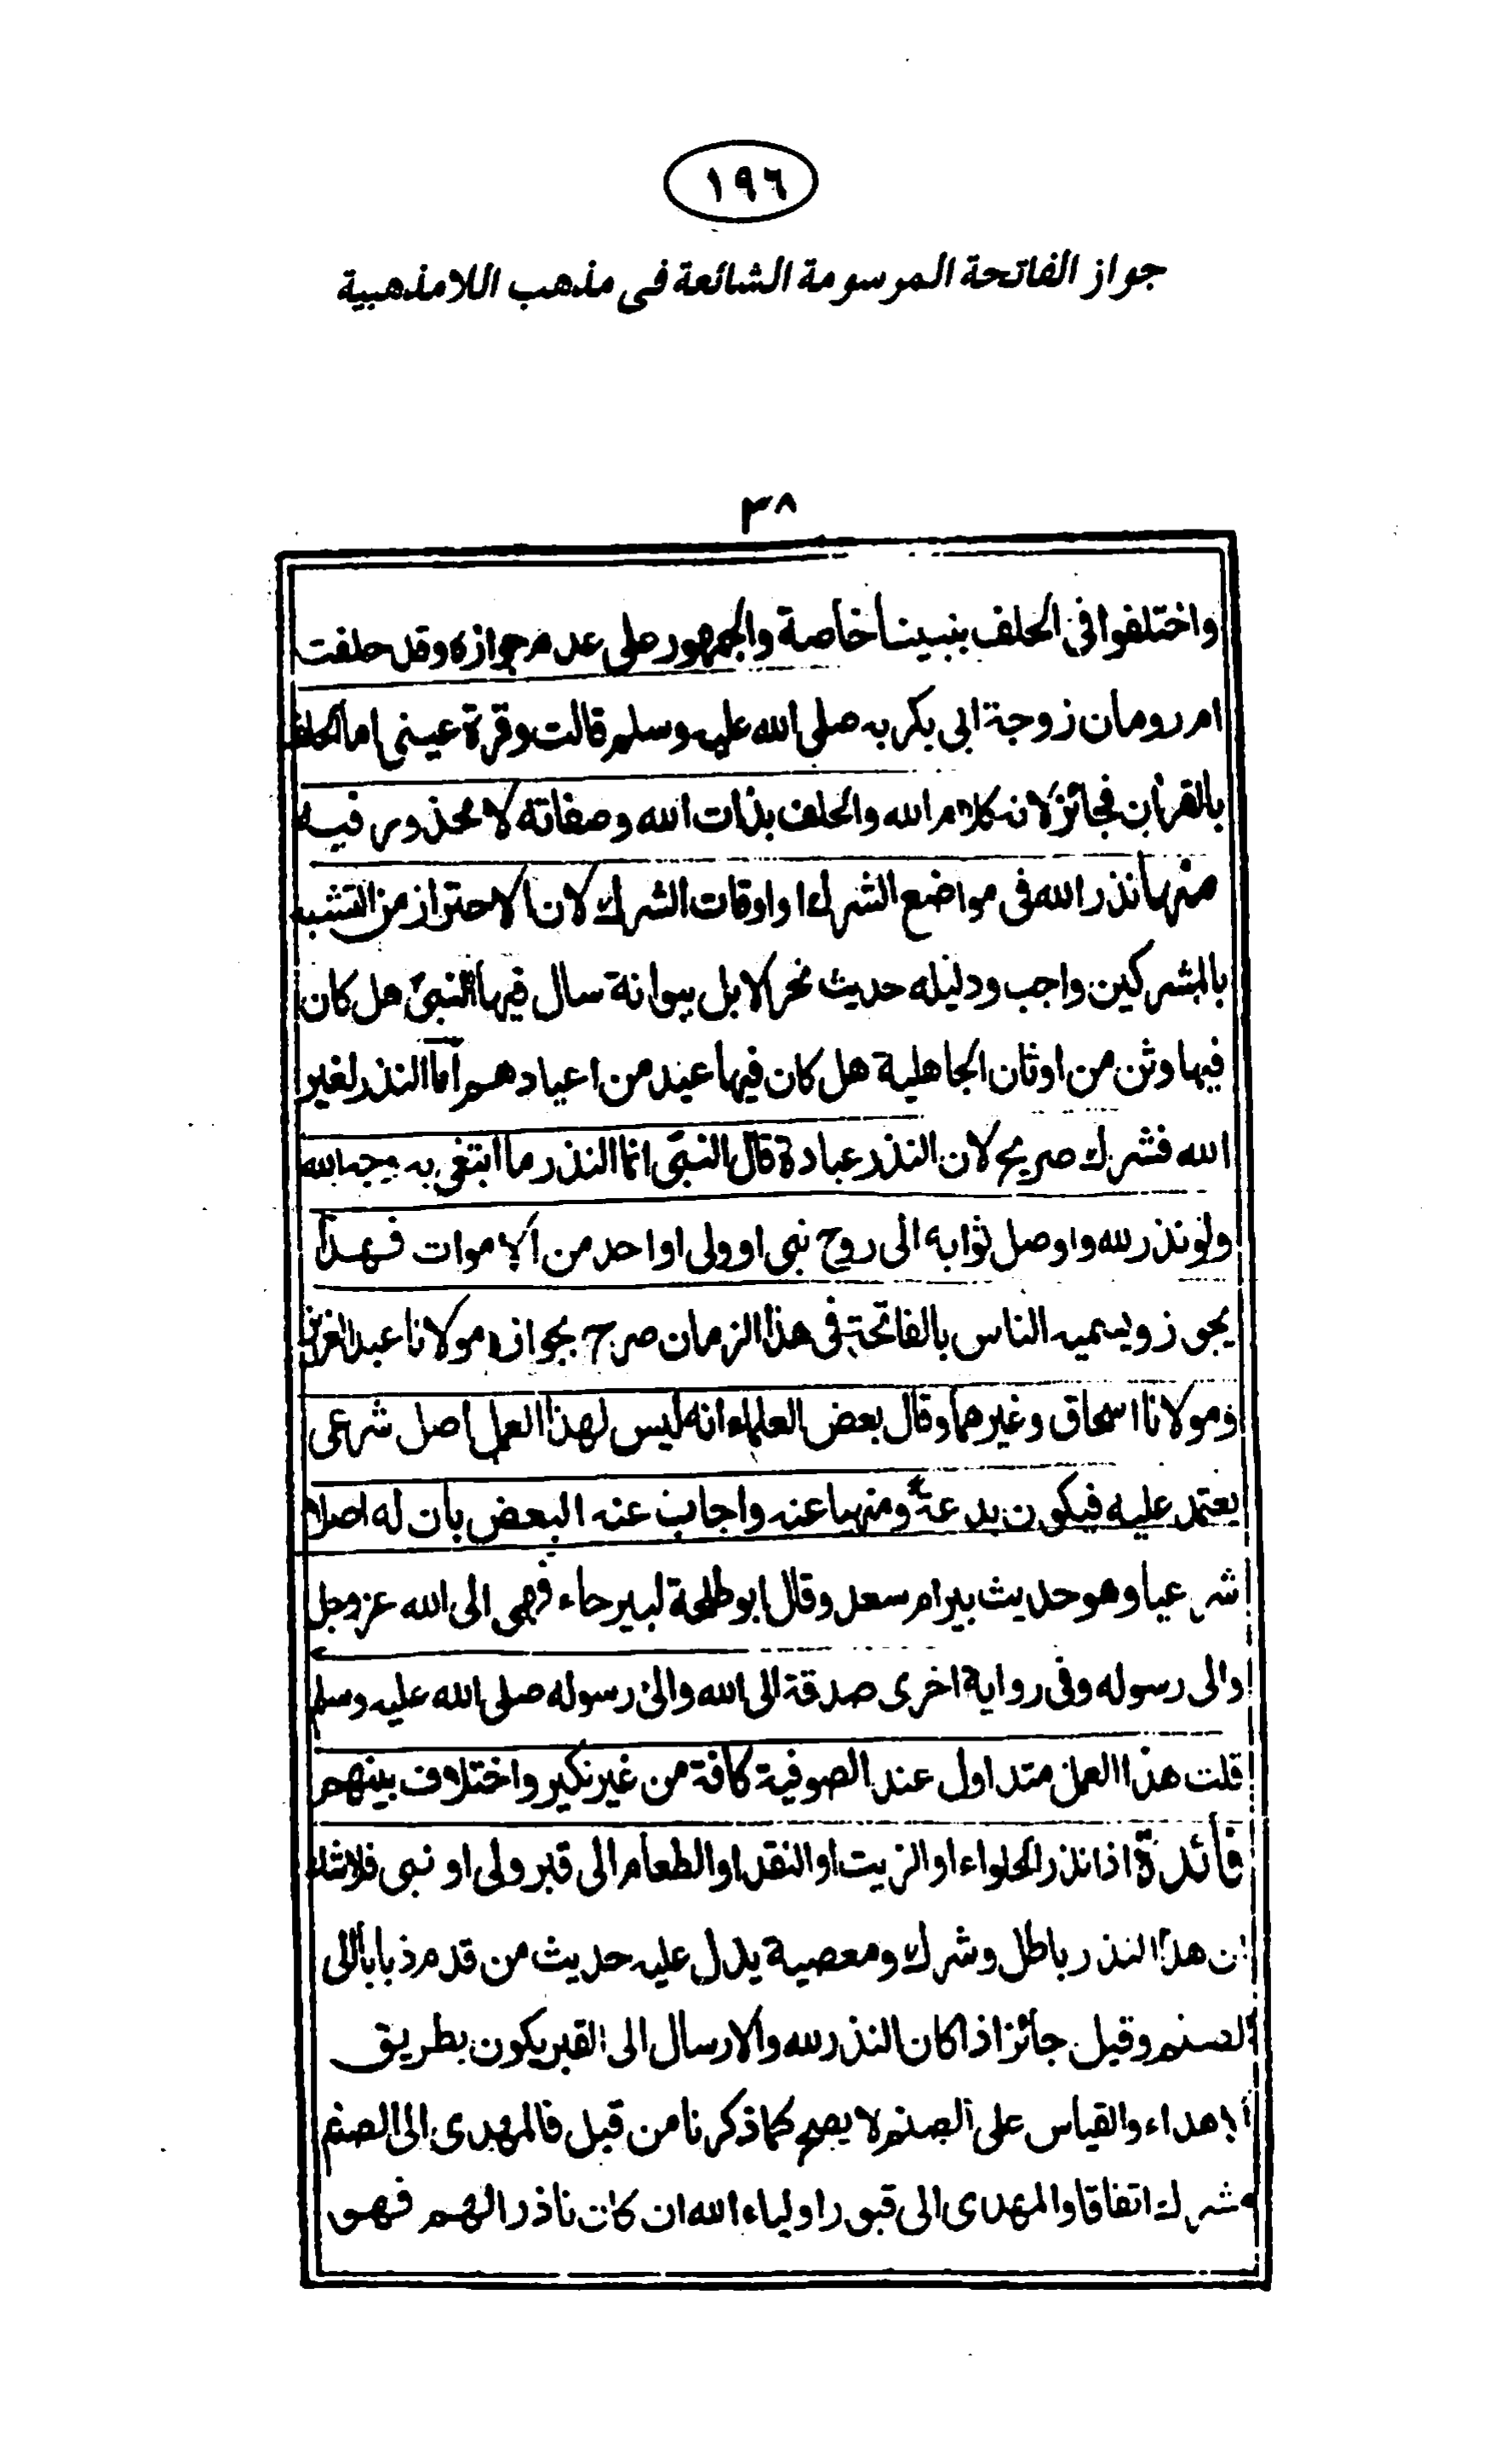 ١٩٦
جواز الفاتحة المرسومة الشائعة فى مذهب اللامذهبية
٣٨
واختلفوا فى الحلف بنبينا خاصة والجمهور على عدم جوازه وقد حلفت
ام رومان زوجة ابى بكر به صلى الله عليه وسلم قالت وقرة عينى اما الحلف
بالقرأن فجائز لانه كلام الله والحلف بذات الله وصفاته لا محذور فيه
منها نذر الله فى مواضع الشرك او اوقات الشرك لان الاحتراز من التشبه
بالمشركين واجب ودليله حديث نحر الابل ببوانة سال فيها النبى هل كان
فيها وثن من اوثان الجاهلية هل كان فيها عيد من اعيادهم اما النذر لغير
الله فشرك صريح لان النذر عبادة قال النبى انما النذر ما ابتغى به وجه الله
ولو نذر لله واوصل ثوابه الى روح نبى او ولى او احد من الاموات فهذا
يجوز ويسميه الناس بالفاتحة فى هذا الزمان صرح بجوازه مولانا عبد العزيز
ومولانا اسحاق وغيرهما وقال بعض العلماء انه ليس لهذا العمل اصل شرعى
يعتمد عليه فيكون بدعة ومنهيا عنه واجاب عنه البعض بان له اصلا
شرعيا وهو حديث بير ام سعد وقال ابو طلحة لبيرحاء فهى الى الله عز وجل
والى رسوله وفى رواية اخرى صدقة الى الله والى رسوله صلى الله عليه وسلم
قلت هذا العمل متداول عند الصوفية كافة من غير نكير واختلاف بينهم
فائدة اذا نذر الحلواء او الزيت او النقد او الطعام الى قبر ولى او نبى فلا شك
ان هذا النذر باطل وشرك ومعصية يدل عليه حديث من قدم ذبابا الى
الصنم وقيل جائز اذا كان النذر لله والارسال الى القبر يكون بطريق
الاهداء والقياس على الصنم لا يصح كما ذكرنا من قبل فالمهدى الى الصنم
مشرك اتفاقا والمهدى الى قبور اولياء الله ان كان ناذرا لهم فهو